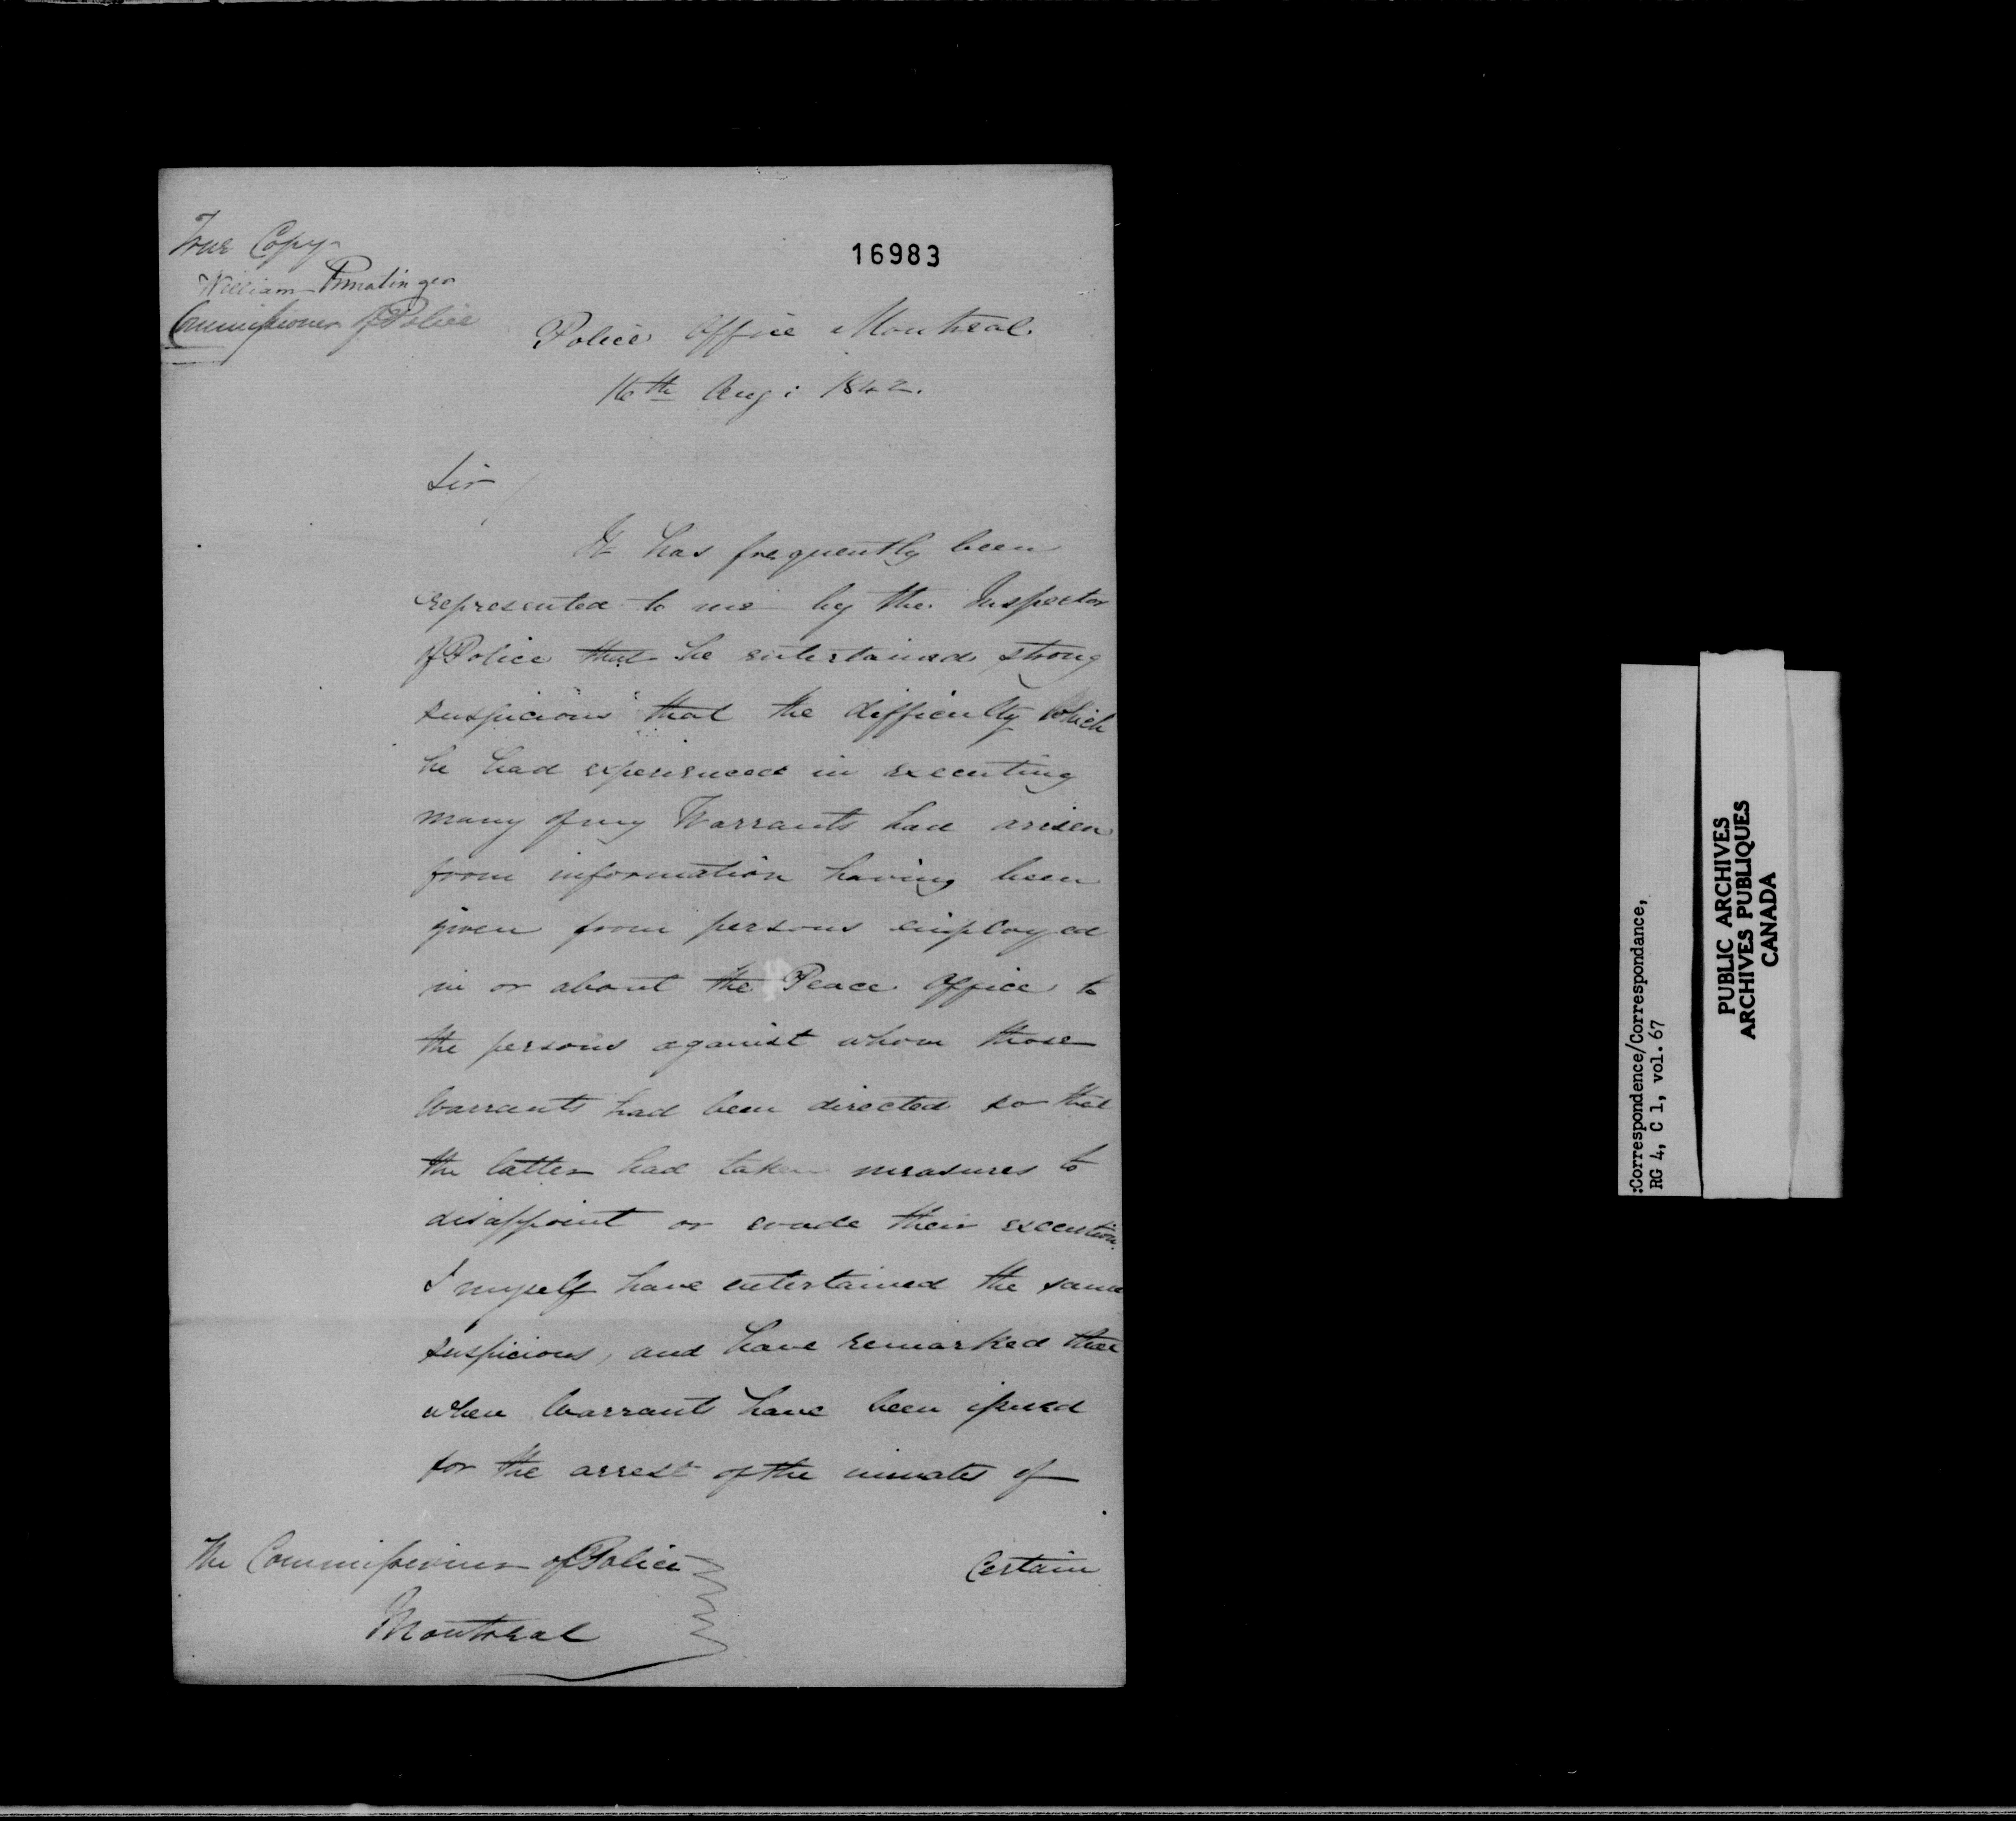 True Copy
William Ermatinger
Commissioner of Police
16983
Police Office Montreal.
16th Aug: 1842.
Sir
It has frequently been
represented to me by the Inspector
of Police that he entertained strong
suspicions that the difficulty which
he had experienced in executing
many of my Warrants had arisen
from information having been
given from persons employed
in or about the Peace Office to
the persons against whom those
Warrants had been directed so that
the latter had taken measures to
disappoint or evade their execution.
I myself have entertained the same
suspicions, and have remarked that
when Warrants have been issued
for the arrest of the inmates of
The Commissioner of Police
Montreal
Certain
:Correspondence/Correspondance,
RG 4, C 1, vol. 67
PUBLIC ARCHIVES
ARCHIVES PUBLIQUES
CANADA